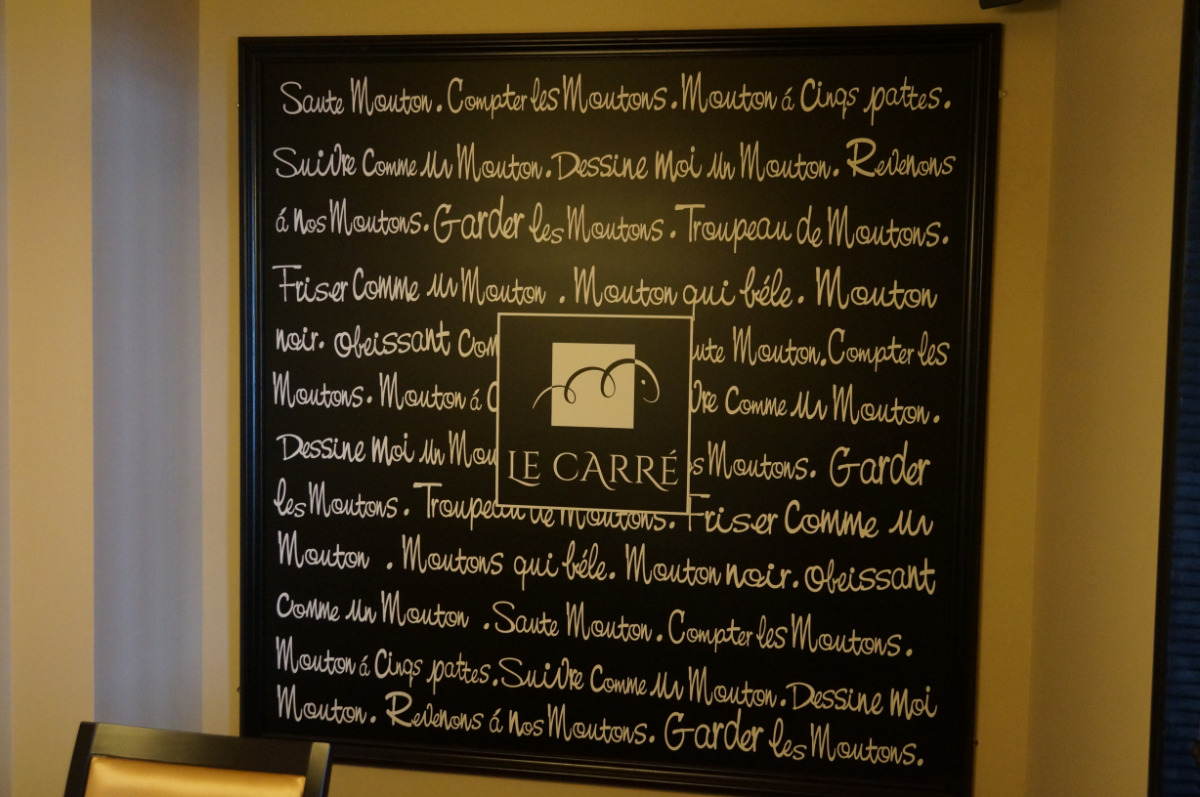 Saute Mouton. Compter les Moutons. Mouton á Cinqs pattes.
Suivre Comme un Mouton. Dessine moi un Mouton. Revenons
á nos Moutons. Garder les Moutons. Troupeau de Moutons.
Friser Comme un Mouton . Mouton qui béle. Mouton
noir. obeissant Com ute Mouton. Compter les
Moutons. Mouton á C vre Comme un Mouton.
Dessine moi un Mou s Moutons. Garder
les Moutons. Troupeau de Moutons. Friser Comme un
Mouton . Moutons qui béle. Mouton noir. obeissant
Comme un Mouton . Saute Mouton. Compter les Moutons.
Mouton á Cinqs pattes. Suivre Comme un Mouton. Dessine moi
Mouton. Revenons á nos Moutons. Garder les Moutons.
LE CARRÉ